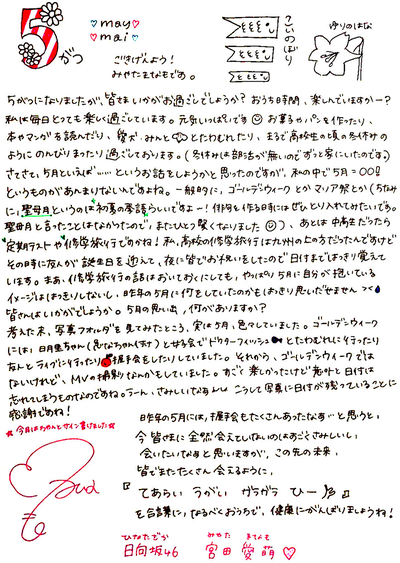 5がつ
♡may♡
♡mai♡
ごきげんよう！
みやたまなもです。
こいのぼり
ゆりのはな
5がつになりましたが、皆さまいかがお過ごしでしょうか？おうち時間、楽しんでいますかー？
私は毎日とっても楽しく過ごしています。元気いっぱいです☺お菓子やパンを作ったり、
本やマンガを読んだり、愛犬みんととたわむれたり、まるで高校生の頃の冬休みの
ようにのんびりまったり過ごしております。（冬休みは部活が無いのでずっと家にいたのです。）
さてさて、5月といえば……というお話をしようかと思ったのですが、私の中で5月=○○!!
というものがあんまりないんですよね。一般的に、ゴールデンウィークとかマリア祭とか（ちなみ
に、聖母月というのは初夏の季語らしいですよー！俳句を作る時にはぜひとり入れてみたいです。
聖母月と言ったことはなかったので、またひとつ賢くなりました☺）、あとは中高生だったら
定期テストや修学旅行ですかね！私、高校の修学旅行は九州の上の方だったんですけど
その時に友人が誕生日を迎えて、夜に皆でお祝いをしたので日付まではっきり覚えて
います。まあ、修学旅行の話はおいておくにしても、やっぱり5月に自分が抱いている
イメージははっきりしないし、昨年の5月に何をしていたのかもはっきり思いだせません＞＜
皆さんはいかがでしょうか。5月の思い出、何がありますか？
考えた末、写真フォルダを見てみたところ、実は5月、色々していました。ゴールデンウィーク
には、丹生ちゃん
友人とライブに行ったり握手会をしたりしていました。それから、ゴールデンウィークでは
ないけれど、MVの撮影なんかもしていました。すごく楽しかったけど意外と日付は
忘れてしまうものなのですね。うーん、さみしいなぁ こうして写真に日付が残っていることに
感謝ですね！
☆今月はちゃんとサイン書けました☆
昨年の5月には、握手会もたくさんあったなぁ…と思うと、
今皆さまに全然会えていないのはすごくさみしいし、
会いたいなぁと思いますが、この先の未来、
皆でまたたくさん会えるように、
『てあらい うがい ガラガラ ひーる』
を合言葉に、なるべくおうちで、健康にがんばりましょうね！
ひなたざか みやた まなも
日向坂46 宮田 愛萌♡